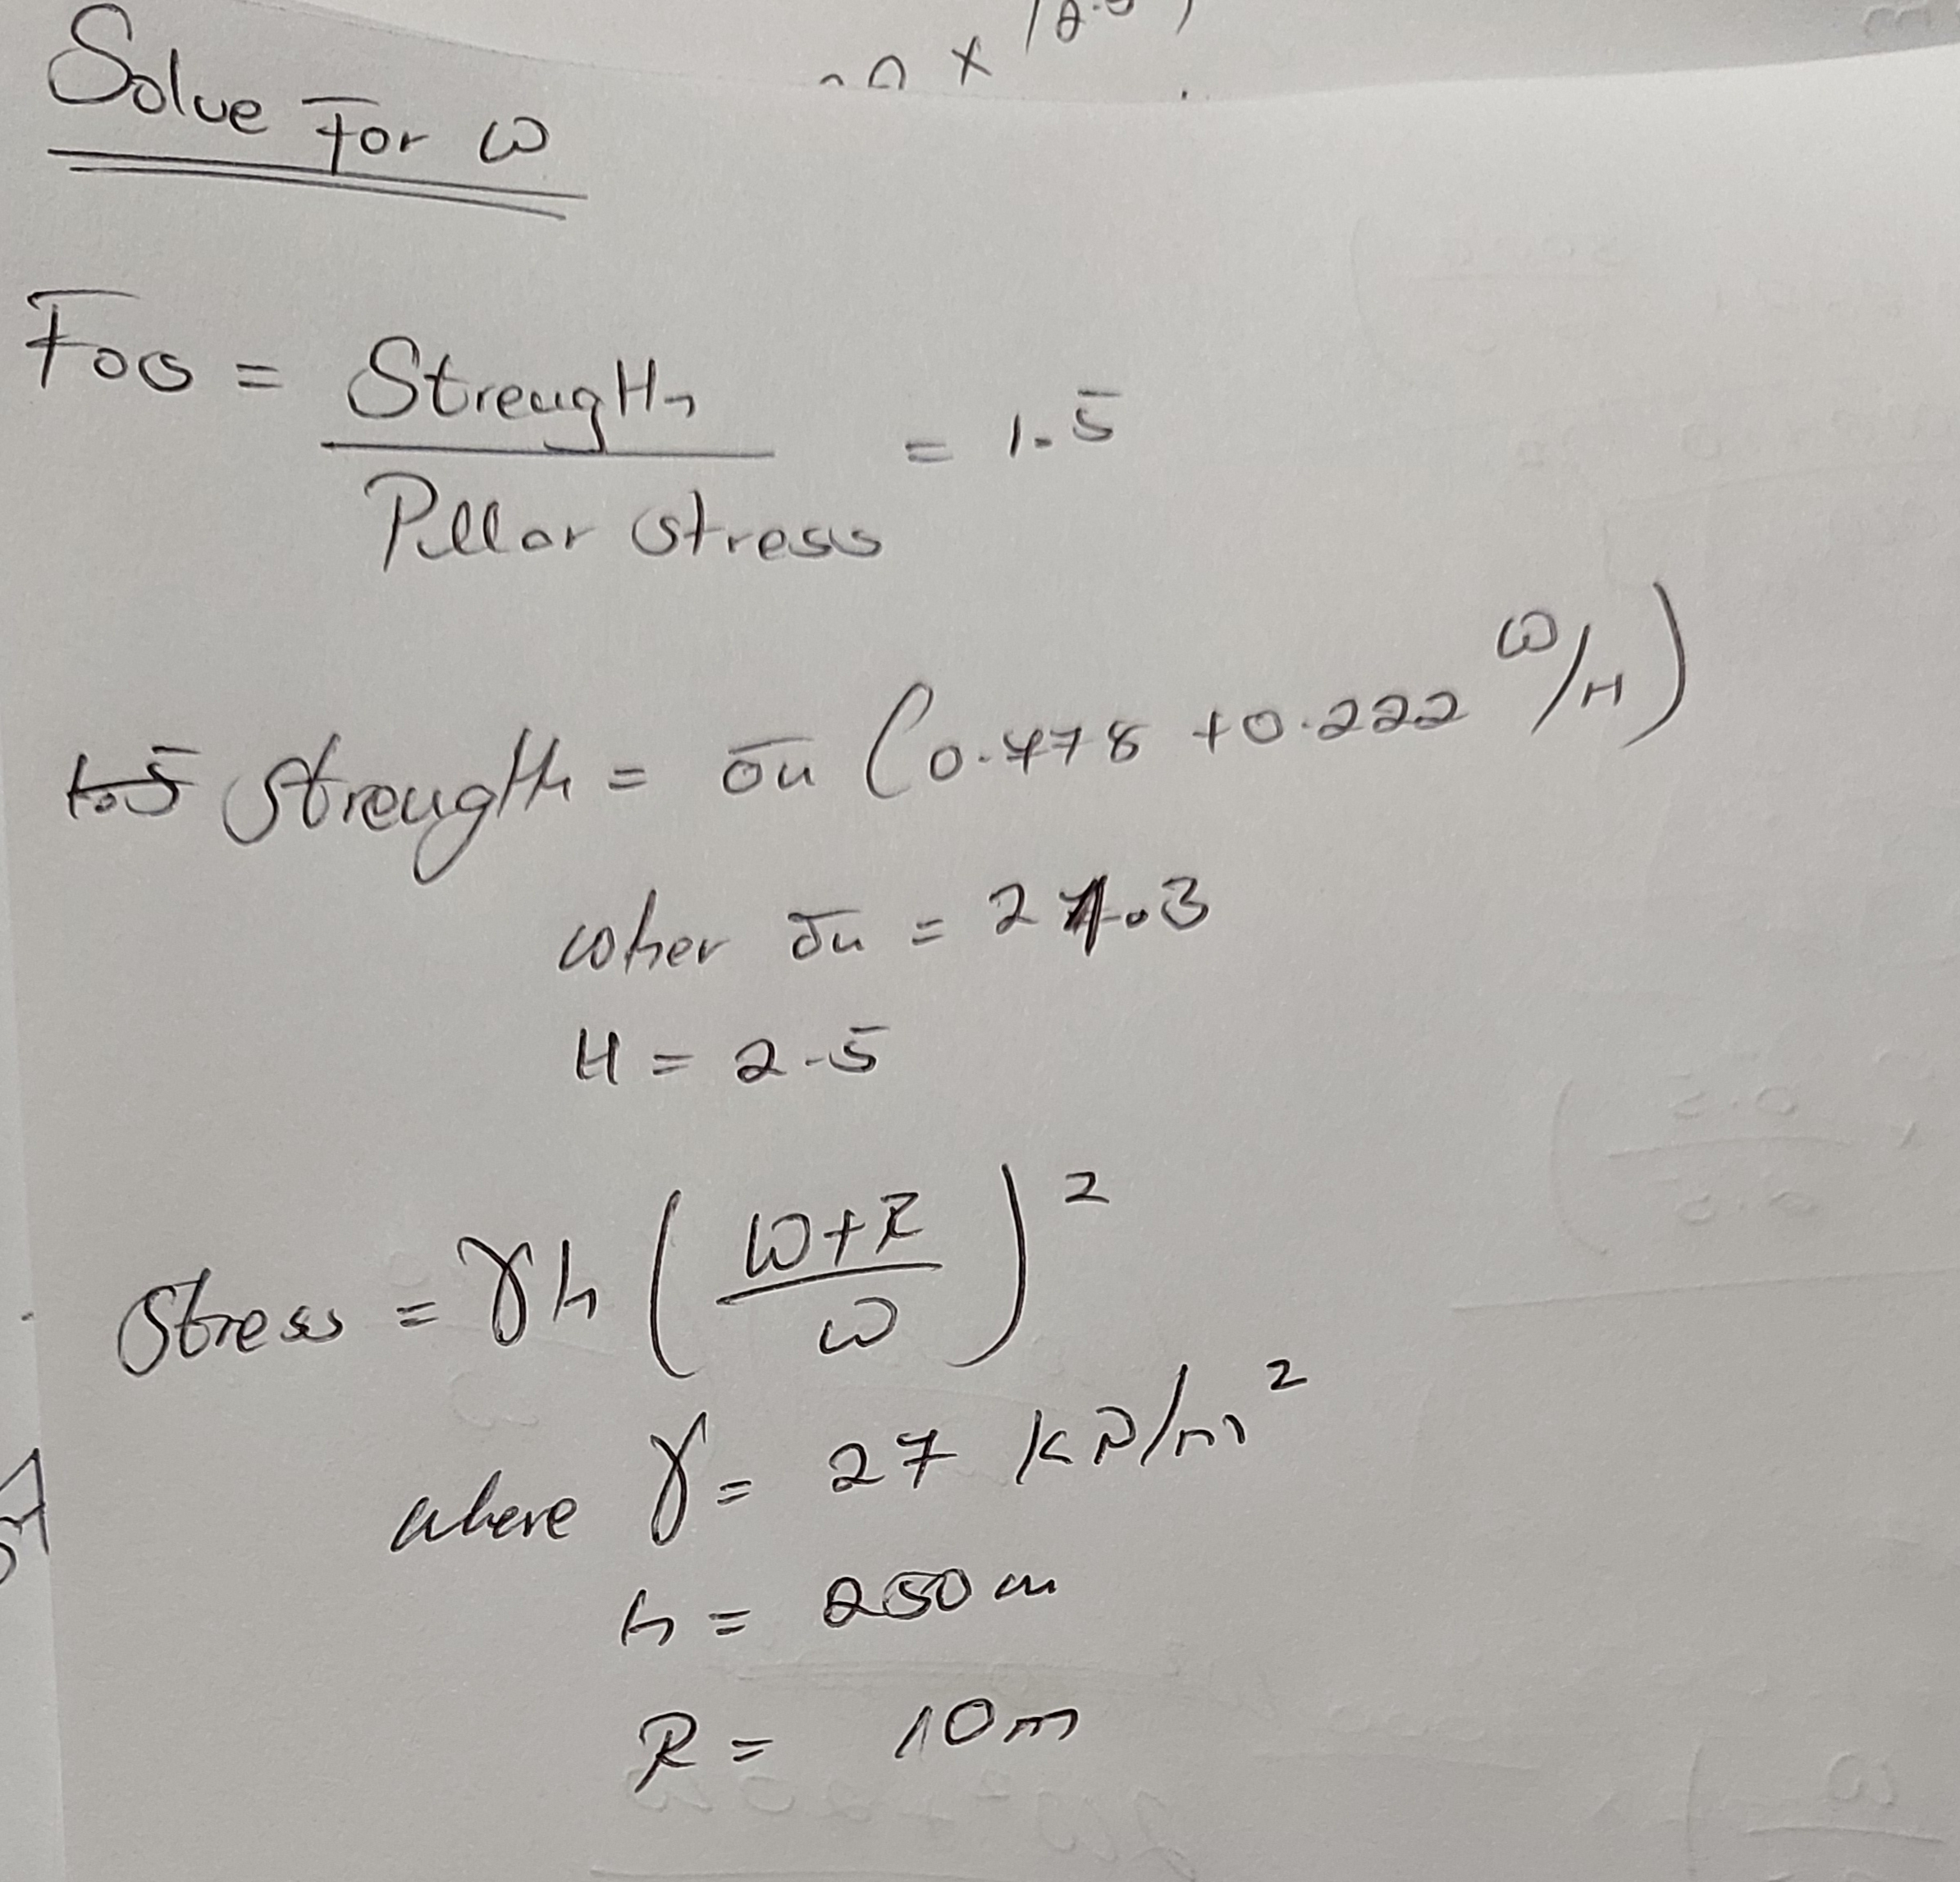 Solve For ω
Fos = Strength / Pillar stress = 1.5
strength = σu (0.478 + 0.222 ω/H)
wher σu =
H = 2.5
Stress = γh ((ω+R)/ω)²
where γ = 27 kN/m²
h = 250m
R = 10m